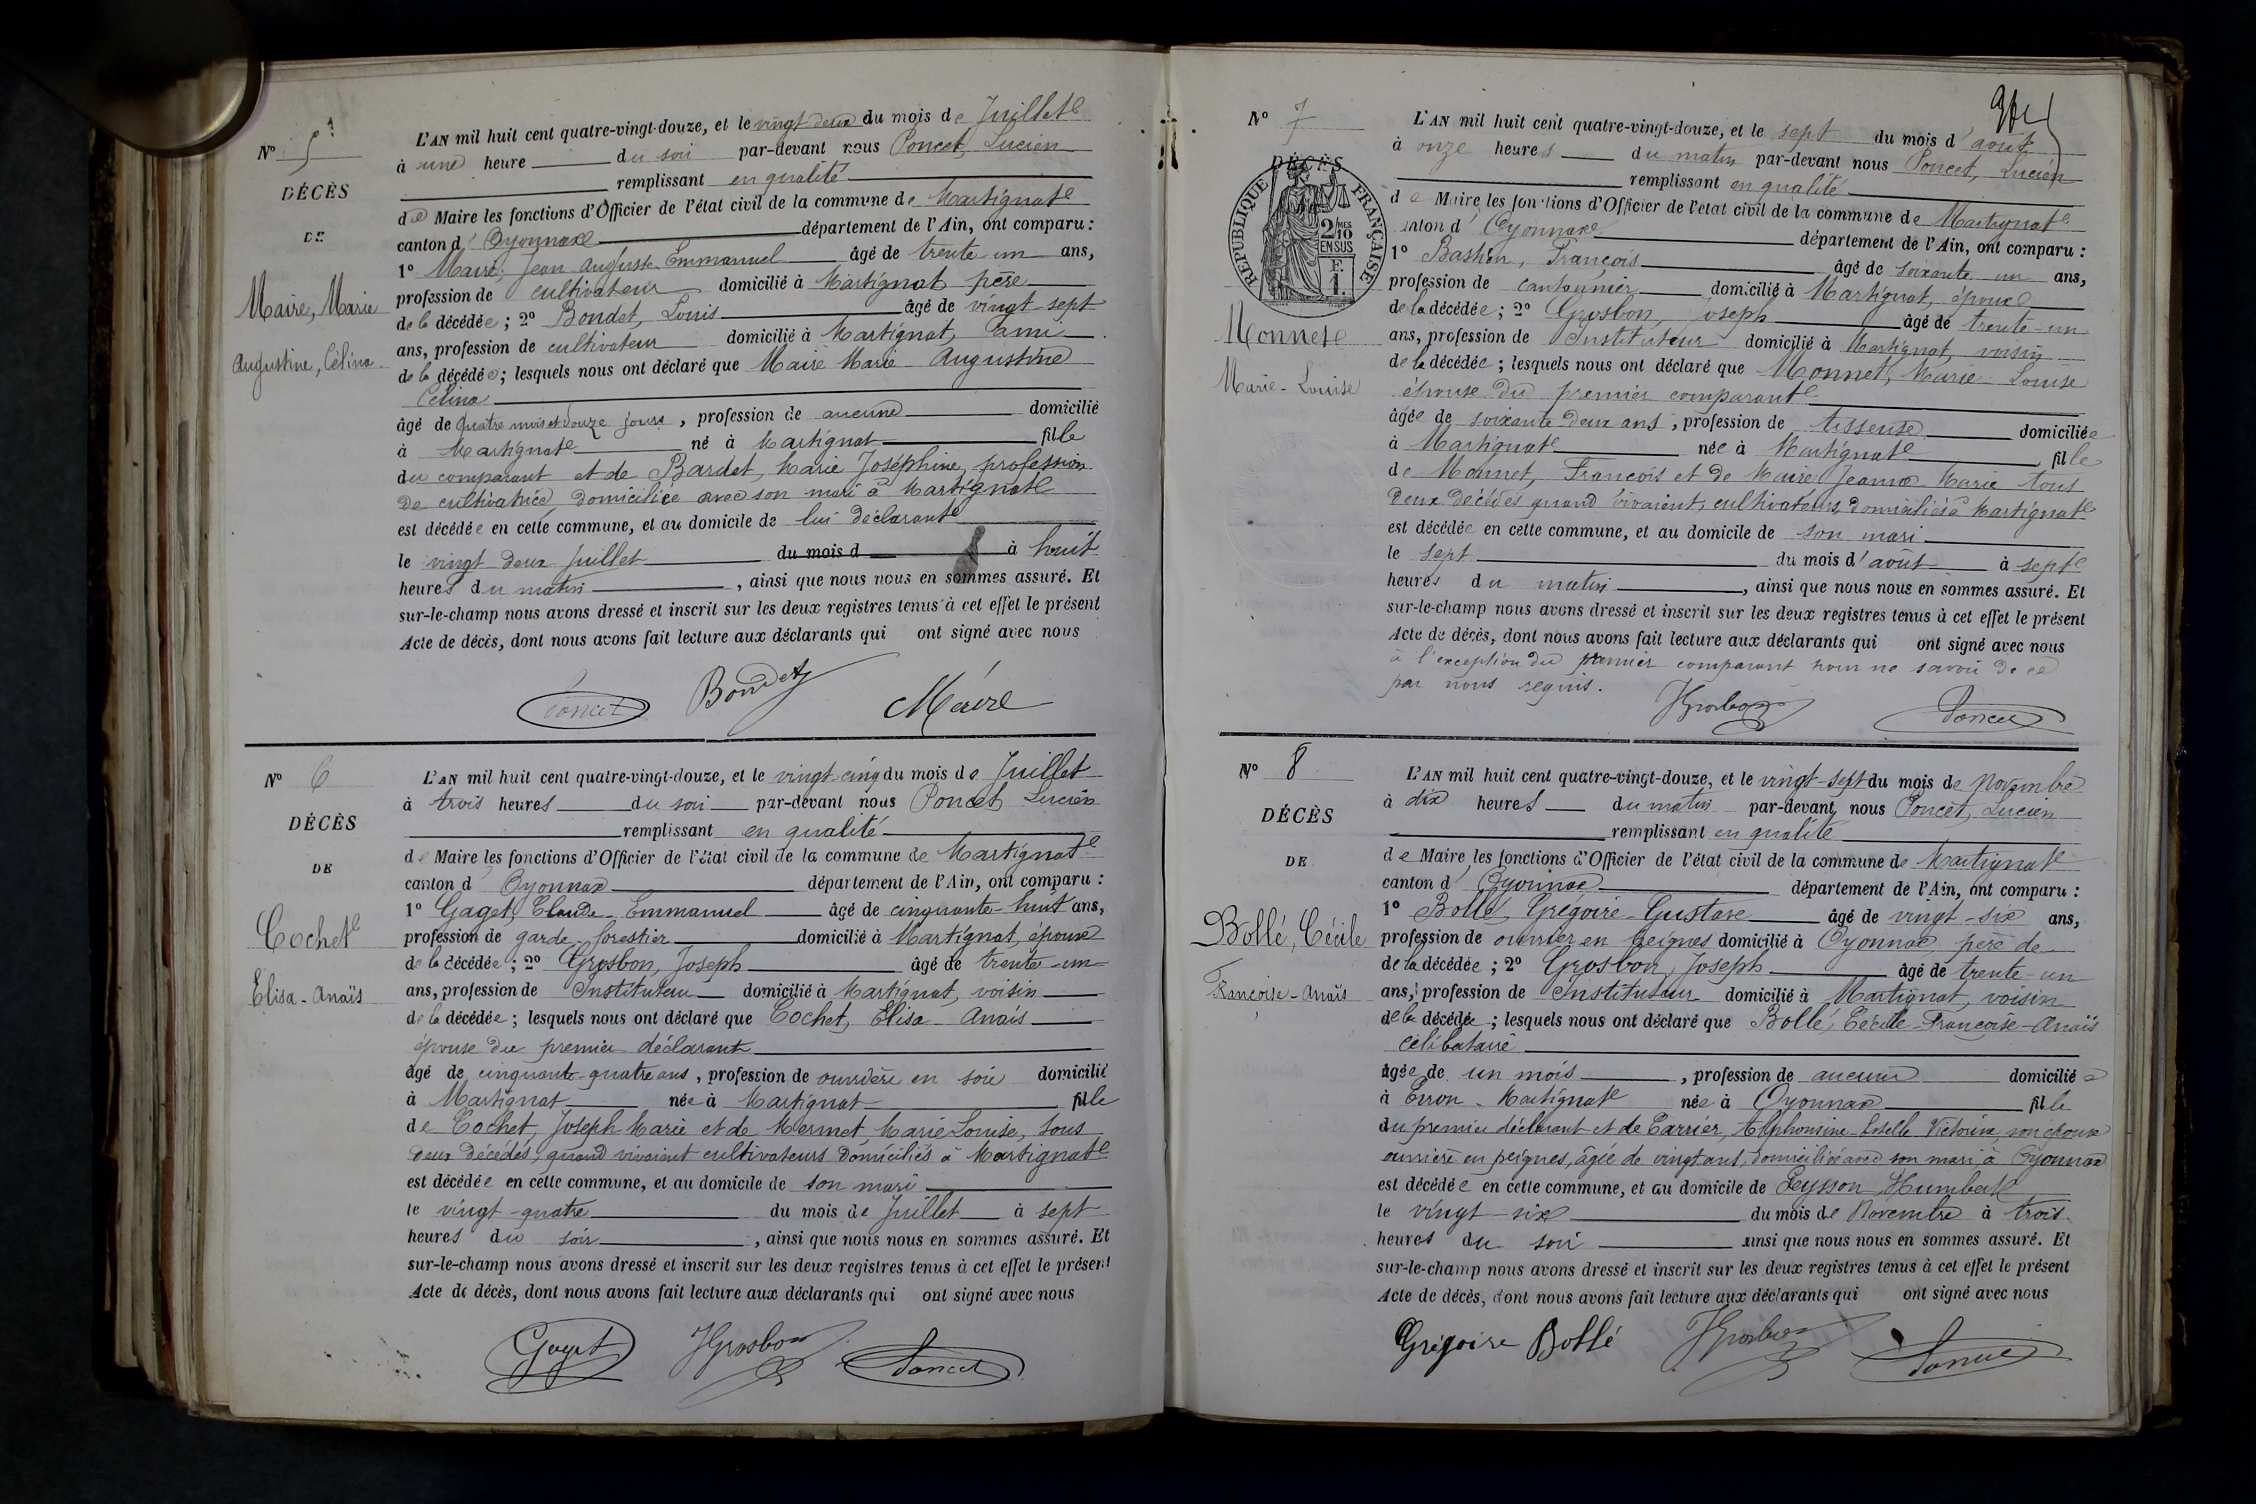 N° 5
DÉCÈS
DE
Maire, Marie
Augustine, Célina
L'AN mil huit cent quatre-vingt-douze, et le vingt deux du mois de Juillet
à une heure du soir par-devant nous Poncet, Lucien
remplissant en qualité
de Maire les fonctions d'Officier de l'état civil de la commune de Martignat
canton d'Oyonnax département de l'Ain, ont comparu :
1° Maire, Jean Auguste Emmanuel âgé de trente un ans,
profession de cultivateur domicilié à Martignat père
de la décédée ; 2° Bondet, Louis âgé de vingt sept
ans, profession de cultivateur domicilié à Martignat, ami
de la décédée ; lesquels nous ont déclaré que Maire Marie Augustine
Célina
âgé de quatre mois et douze jours, profession de aucune domicilié
à Martignat né à Martignat fille
du comparant et de Bardet, Marie Joséphine, profession
de cultivatrice, domiciliée avec son mari à Martignat
est décédée en cette commune, et au domicile de lui déclarant
le vingt deux Juillet du mois d à huit
heures du matin, ainsi que nous nous en sommes assuré. Et
sur-le-champ nous avons dressé et inscrit sur les deux registres tenus à cet effet le présent
Acte de décès, dont nous avons fait lecture aux déclarants qui ont signé avec nous
Poncet Bondet Maire
N° 6
DÉCÈS
DE
Cochet
Elisa-Anaïs
L'AN mil huit cent quatre-vingt-douze, et le vingt-cinq du mois de Juillet
à trois heures du soir par-devant nous Poncet, Lucien
remplissant en qualité
de Maire les fonctions d'Officier de l'état civil de la commune de Martignat
canton d'Oyonnax département de l'Ain, ont comparu :
1° Gaget, Claude-Emmanuel âgé de cinquante-huit ans,
profession de garde forestier domicilié à Martignat, époux
de la décédée ; 2° Grosbon, Joseph âgé de trente-un
ans, profession de Instituteur domicilié à Martignat, voisin
de la décédée ; lesquels nous ont déclaré que Cochet, Elisa-Anaïs
épouse du premier déclarant
âgé de cinquante-quatre ans, profession de ouvrière en soie domicilié
à Martignat née à Martignat fille
de Cochet, Joseph-Marie et de Mermet, Marie Louise, tous
deux décédés, quand vivaient cultivateurs domiciliés à Martignat
est décédée en cette commune, et au domicile de son mari
le vingt-quatre du mois de Juillet à sept
heures du soir, ainsi que nous nous en sommes assuré. Et
sur-le-champ nous avons dressé et inscrit sur les deux registres tenus à cet effet le présent
Acte de décès, dont nous avons fait lecture aux déclarants qui ont signé avec nous
Gaget JGrosbon Poncet
N° 7
DÉCÈS
RÉPUBLIQUE FRANÇAISE
2/10 MES
EN SUS
F.
1.
Monnet
Marie-Louise
L'AN mil huit cent quatre-vingt-douze, et le sept du mois d'août
à onze heures du matin par-devant nous Poncet, Lucien
remplissant en qualité
de Maire les fonctions d'Officier de l'état civil de la commune de Martignat
canton d'Oyonnax département de l'Ain, ont comparu :
1° Bastien, François âgé de soixante un ans,
profession de cantonnier domicilié à Martignat, époux
de la décédée ; 2° Grosbon, Joseph âgé de trente-un
ans, profession de Instituteur domicilié à Martignat, voisin
de la décédée ; lesquels nous ont déclaré que Monnet, Marie-Louise
épouse du premier comparant
âgée de soixante deux ans, profession de tisseuse domiciliée
à Martignat née à Martignat fille
de Monnet, François et de Maire Jeanne Marie tous
deux décédés quand vivaient, cultivateurs, domiciliés à Martignat
est décédée en cette commune, et au domicile de son mari
le sept du mois d'août à sept
heures du matin, ainsi que nous nous en sommes assuré. Et
sur-le-champ nous avons dressé et inscrit sur les deux registres tenus à cet effet le présent
Acte de décès, dont nous avons fait lecture aux déclarants qui ont signé avec nous
à l'exception du premier comparant pour ne savoir de ce
par nous requis.
JGrosbon Poncet
N° 8
DÉCÈS
DE
Bollé, Cécile
Françoise-Anaïs
L'AN mil huit cent quatre-vingt-douze, et le vingt-sept du mois de Novembre
à dix heures du matin par-devant nous Poncet, Lucien
remplissant en qualité
de Maire les fonctions d'Officier de l'état civil de la commune de Martignat
canton d'Oyonnax département de l'Ain, ont comparu :
1° Bollé, Grégoire-Gustave âgé de vingt-six ans,
profession de ouvrier en peignes domicilié à Oyonnax père de
de la décédée ; 2° Grosbon, Joseph âgé de trente-un
ans, profession de Instituteur domicilié à Martignat, voisin
de la décédée ; lesquels nous ont déclaré que Bollé, Cécile-Françoise-Anaïs
célibataire
âgée de un mois, profession de aucune domiciliée
à Evron-Martignat née à Oyonnax fille
du premier déclarant et de Carrier, Alphonsine Victorine, son épouse
ouvrière en peignes, âgée de vingt ans, domiciliée avec son mari à Oyonnax
est décédée en cette commune, et au domicile de Peysson Humbert
le vingt-six du mois de Novembre à trois
heures du soir ainsi que nous nous en sommes assuré. Et
sur-le-champ nous avons dressé et inscrit sur les deux registres tenus à cet effet le présent
Acte de décès, dont nous avons fait lecture aux déclarants qui ont signé avec nous
Grégoire Bollé JGrosbon Poncet